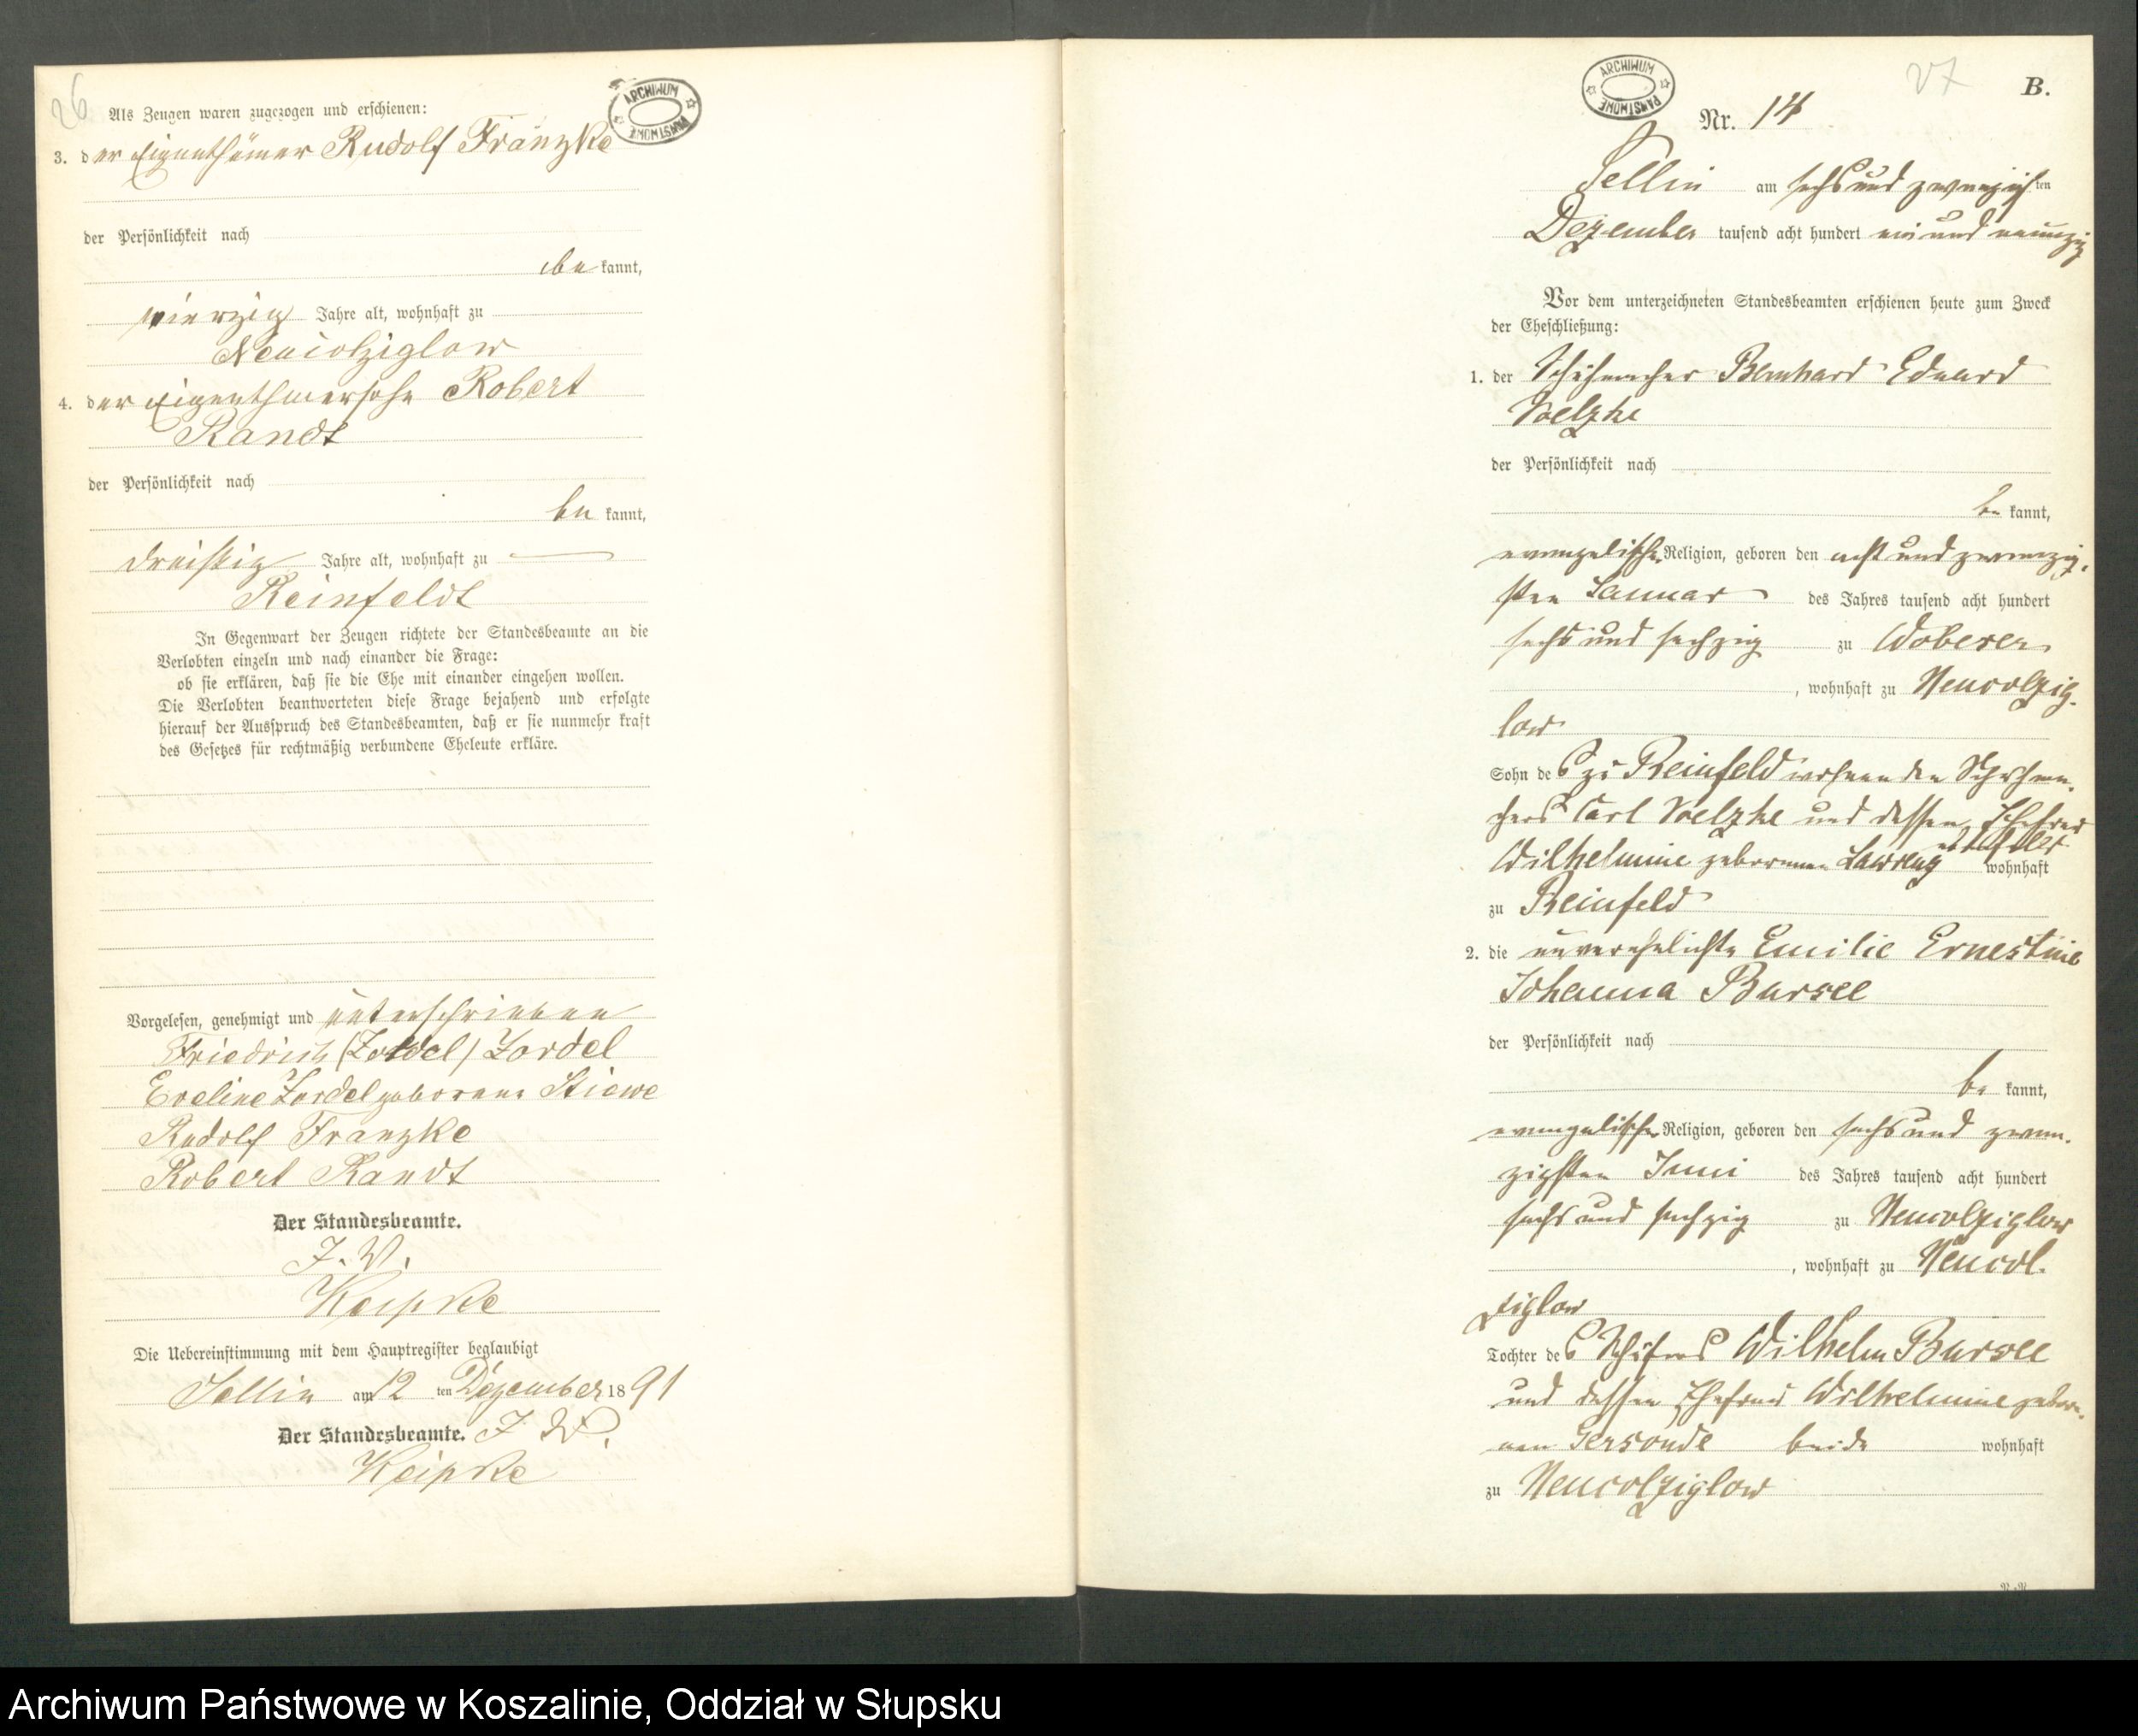 26
Als Zeugen waren zugezogen und erschienen:
ARCHIWUM PAŃSTWOWE
3. der Eigenthümer Rudolf Franzke
der Persönlichkeit nach
bekannt,
vierzig Jahre alt, wohnhaft zu
Neucolziglow
4. der Eigenthümersohn Robert
Randt
der Persönlichkeit nach
be kannt,
dreißig Jahre alt, wohnhaft zu
Reinfeldt
In Gegenwart der Zeugen richtete der Standesbeamte an die
Verlobten einzeln und nach einander die Frage:
ob sie erklären, daß sie die Ehe mit einander eingehen wollen.
Die Verlobten beantworteten diese Frage bejahend und erfolgte
hierauf der Ausspruch des Standesbeamten, daß er sie nunmehr kraft
des Gesetzes für rechtmäßig verbundene Eheleute erkläre.
Vorgelesen, genehmigt und unterschrieben
Friedrich (Zordel) Zordel
Eveline Zordel geborene Stiewe
Rudolf Franzke
Robert Randt
Der Standesbeamte.
J. V.
Keipke
Die Uebereinstimmung mit dem Hauptregister beglaubigt
Sellin am 12 ten Dezember 1891
Der Standesbeamte. J. V.
Keipke
27
B.
ARCHIWUM PAŃSTWOWE
Nr. 14
Sellin am sechs und zwanzigsten
Dezember tausend acht hundert ein und neunzig
Vor dem unterzeichneten Standesbeamten erschienen heute zum Zweck
der Eheschließung:
1. der Schuhmacher Bernhard Eduard
Voelzke
der Persönlichkeit nach
be kannt,
evangelischer Religion, geboren den acht und zwanzig-
sten Januar des Jahres tausend acht hundert
sechs und sechzig zu Woberer
, wohnhaft zu Neucolzig-
low
Sohn des zu Reinfeld wohnenden Schuhma-
chers Carl Voelzke und dessen Ehefrau
Wilhelmine geborenen Lawrenz wohnhaft
zu Reinfeld
2. die unverehelichte Emilie Ernestine
Johanna Bursee
der Persönlichkeit nach
be kannt,
evangelischer Religion, geboren den sechs und zwan-
zigsten Juni des Jahres tausend acht hundert
sechs und sechzig zu Neucolziglow
, wohnhaft zu Neucol-
ziglow
Tochter des Schäfers Wilhelm Bursee
und dessen Ehefrau Wilhelmine gebore-
nen Gersonde beide wohnhaft
zu Neucolziglow
Archiwum Państwowe w Koszalinie, Oddział w Słupsku